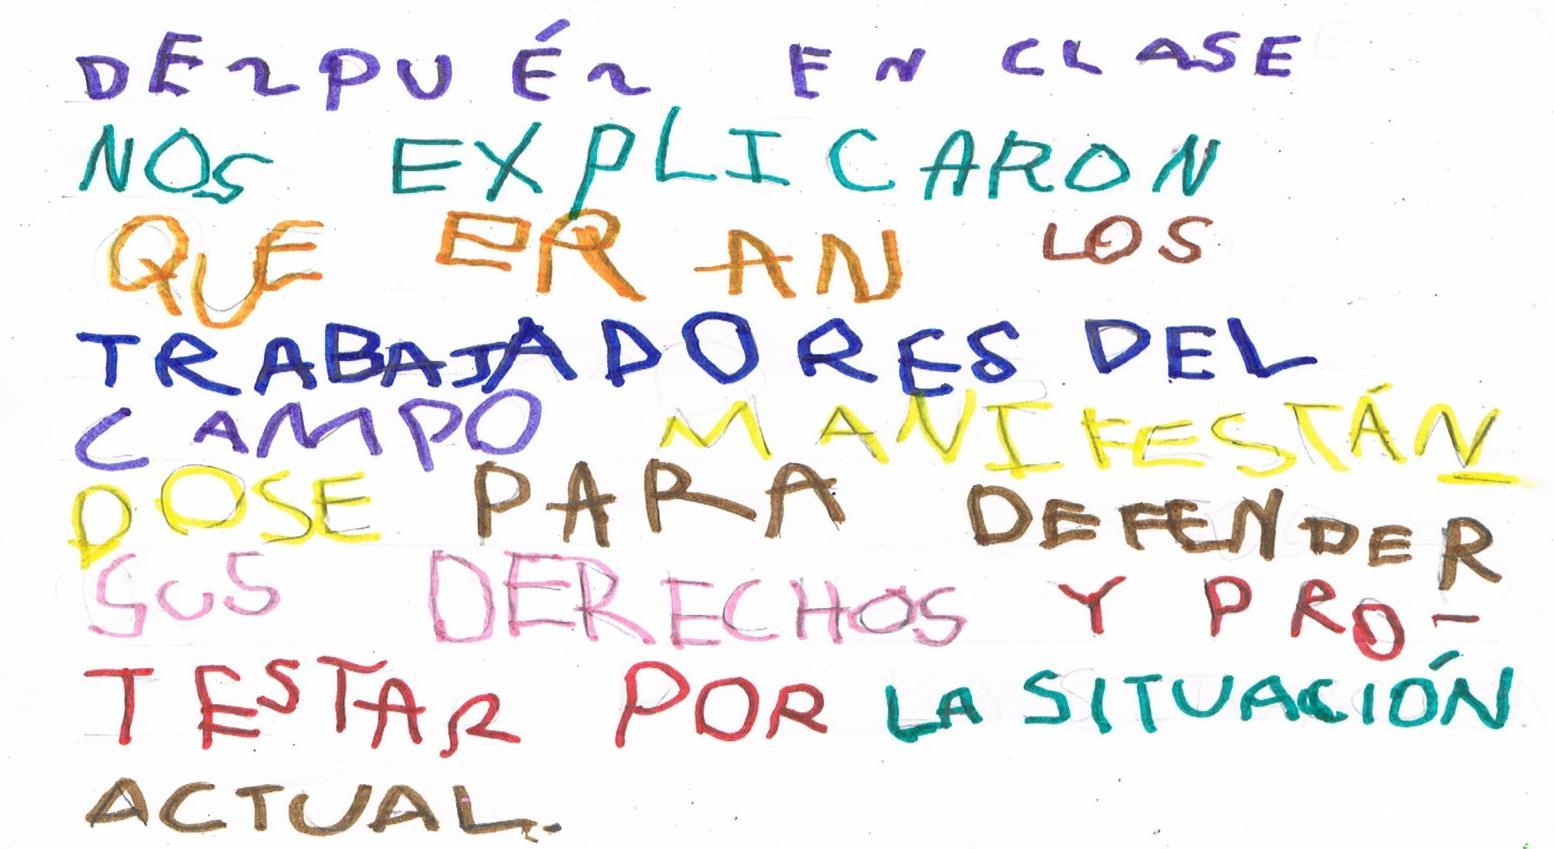 DESPUÉS EN CLASE
NOS EXPLICARON
QUE ERAN LOS
TRABAJADORES DEL
CAMPO MANIFESTÁN
DOSE PARA DEFENDER
SUS DERECHOS Y PRO-
TESTAR POR LA SITUACIÓN
ACTUAL.